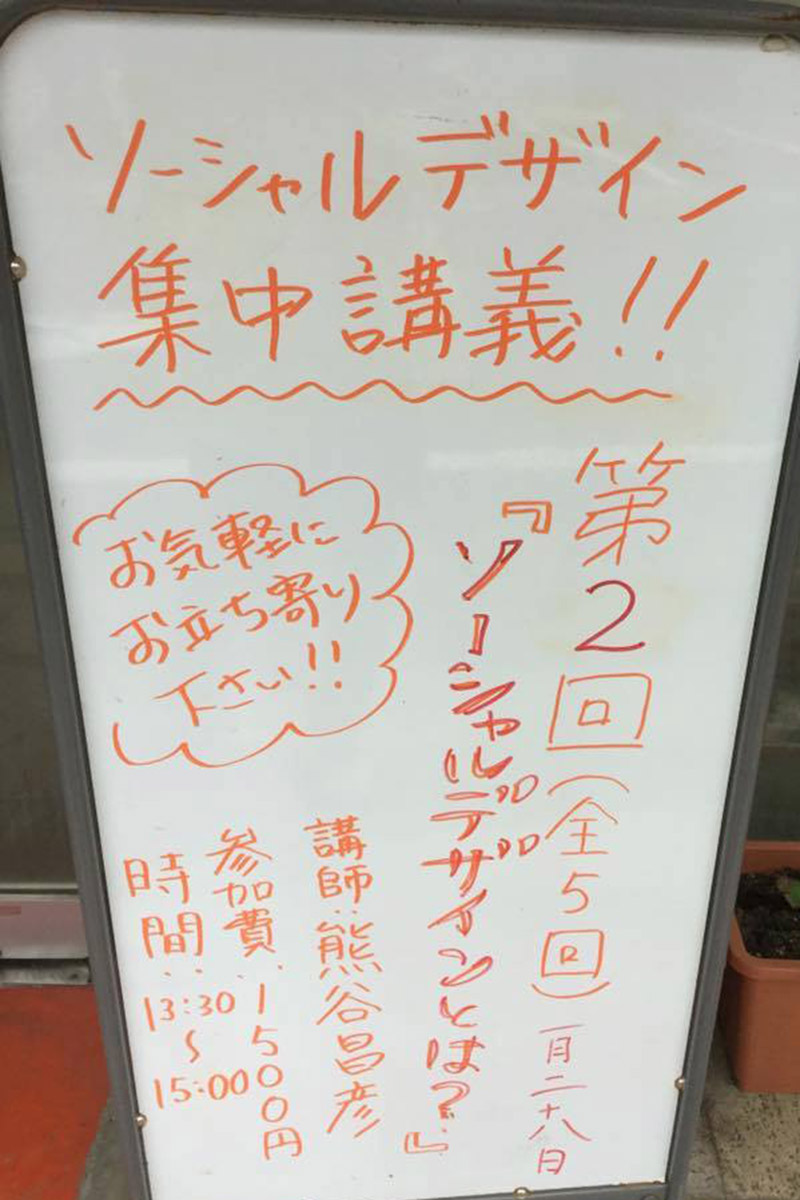 ソーシャルデザイン
集中講義!!
第2回(全5回)一月二十八日
『ソーシャルデザインとは?』
お気軽に
お立ち寄り
下さい!!
講師:熊谷昌彦
参加費:1500円
時間:13:30〜15:00